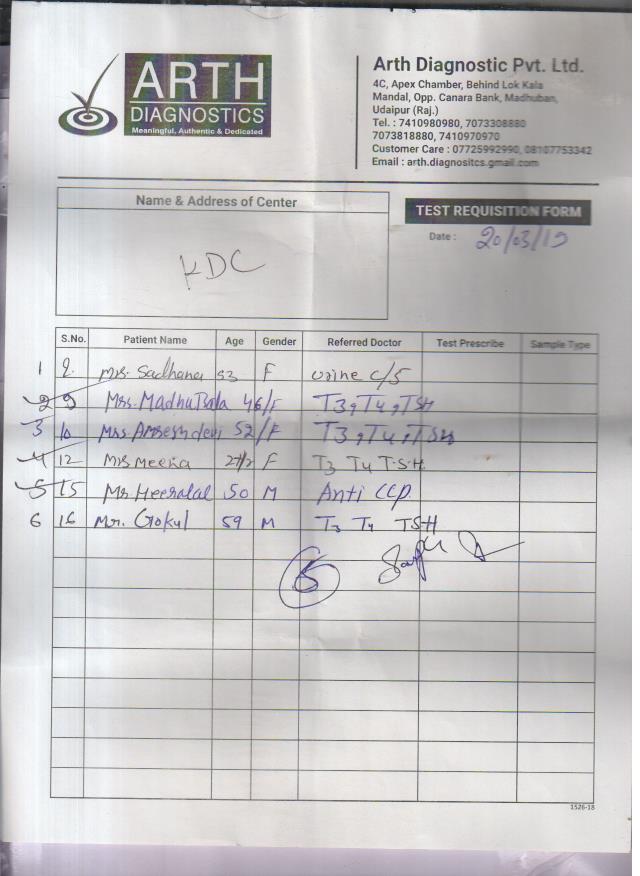 ARTH
DIAGNOSTICS
Meaningful, Authentic & Dedicated
Arth Diagnostic Pvt. Ltd.
4C, Apex Chamber, Behind Lok Kala
Mandal, Opp. Canara Bank, Madhuban,
Udaipur (Raj.)
Tel. : 7410980980, 7073308880
7073818880, 7410970970
Customer Care : 07725992990, 08107753342
Email : arth.diagnositcs.gmail.com
Name & Address of Center
KDC
TEST REQUISITION FORM
Date : 20/03/19
S.No. Patient Name Age Gender Referred Doctor Test Prescribe Sample Type
1 Mrs. Sadhana 53 F Urine C/S
2 9 Mrs. Madhu Bala 46/F T3, T4, TSH
3 10 Mrs 52/F T3, T4, TSH
4 12 Mrs Meena F T3 T4 T.S.H.
5 15 Mr Heeralal 50 M Anti CCP.
6 16 Mr. Gokul 59 M T3 T4 TSH
1526-18